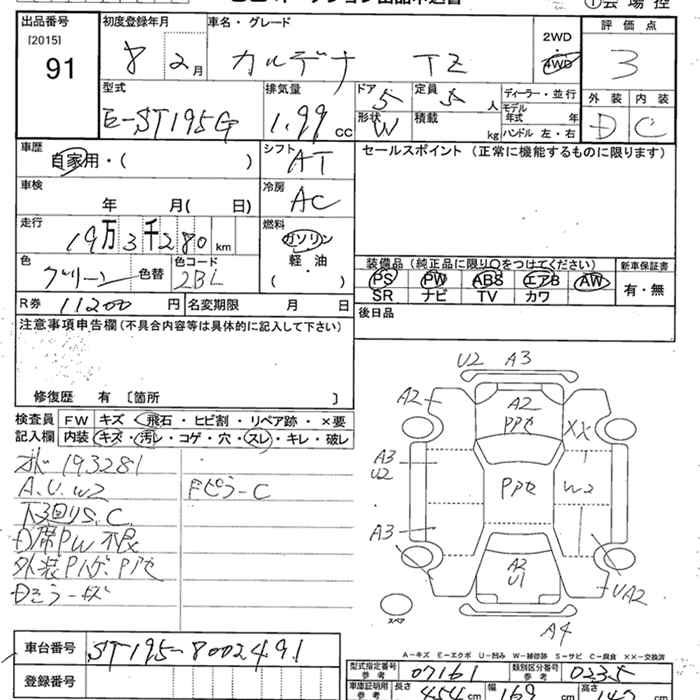 出品番号
[2015]
91
初度登録年月
8 2月
車名・グレード
カルデナ TZ
2WD
4WD
評価点
3
外装 内装
D C
型式
E-ST195G
排気量
1.99 cc
ドア
5
定員
5 人
形状
W
積載
kg
ディーラー・並行
モデル年式 年
ハンドル 左・右
車歴
自家用・( )
シフト
AT
セールスポイント(正常に機能するものに限ります)
車検
年 月( 日)
冷房
AC
走行
19万3千280km
燃料
ガソリン
軽・油
( )
色
グリーン
色替
色コード
2BL
装備品(純正品に限り○をつけてください)
PS PW ABS エアB AW
SR ナビ TV カワ
新車保証書
有・無
R券 11200円
名変期限 月 日
後日品
注意事項申告欄(不具合内容等は具体的に記入して下さい)
修復歴 有 〔箇所 〕
検査員記入欄
FW キズ・飛石・ヒビ割・リペア跡・×要
内装 キズ・汚レ・コゲ・穴・スレ・キレ・破レ
193281
A.U.W2
FピラーC
下回りS.C.
D席PW不良
U2 A3
A2
A2
PP セ
XX
A3
U2
PP セ
W2
A3
A2
U1
UA2
A4
スペア
A-キズ E-エクボ U-凹み W-補修跡 S-サビ C-腐食 ××-交換済
車台番号 ST195-8002491
登録番号
型式指定番号 参考 07161
類別区分番号 参考 0235
車庫証明用 参考
長さ 454 cm
幅 169 cm
高さ
cm